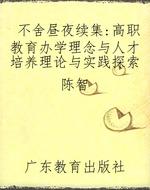 不舍昼夜续集:高职
教育办学理念与人才
培养理论与实践探索
陈智
广东教育出版社